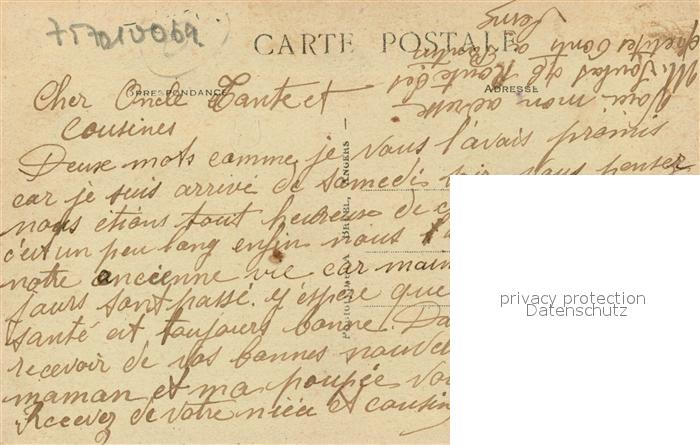 757010069
CARTE POSTALE
CORRESPONDANCE
ADRESSE
Cher Oncle Tante et
Cousines
Deux mots comme je vous l'avais promis
car je suis arrivé de samedi soir vous penser
nous étions tout heureuse de
c'est un peu long enfin nous
notre ancienne vie car main
jours sont passé. j'éspère que
santé est toujours bonne. Da
recevoir de vos bonnes nouvel
maman et ma poupée vo
Recevez de votre nièce et cousin
Voici mon adresse
ANGERS
privacy protection
Datenschutz